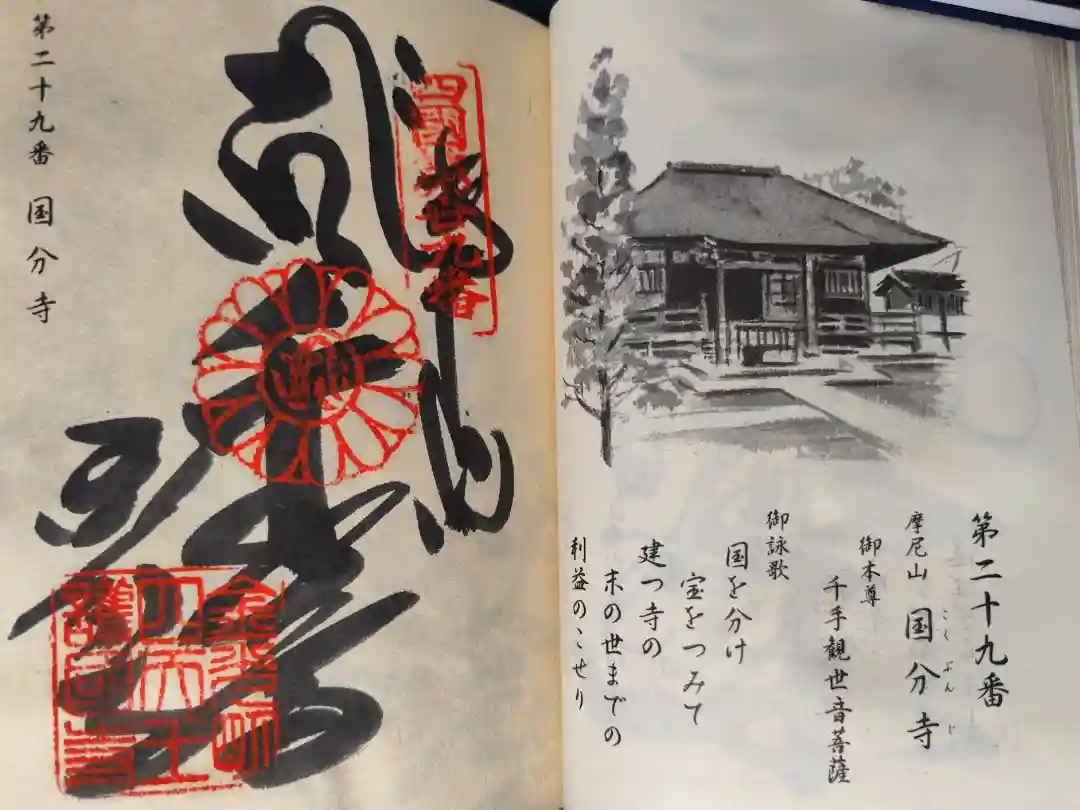 第二十九番
摩尼山 国分寺
こくぶんじ
御本尊
千手観世音菩薩
御詠歌
国を分け
宝をつみて
建つ寺の
末の世までの
利益のこせり
四國第廿九番
第二十九番 国分寺